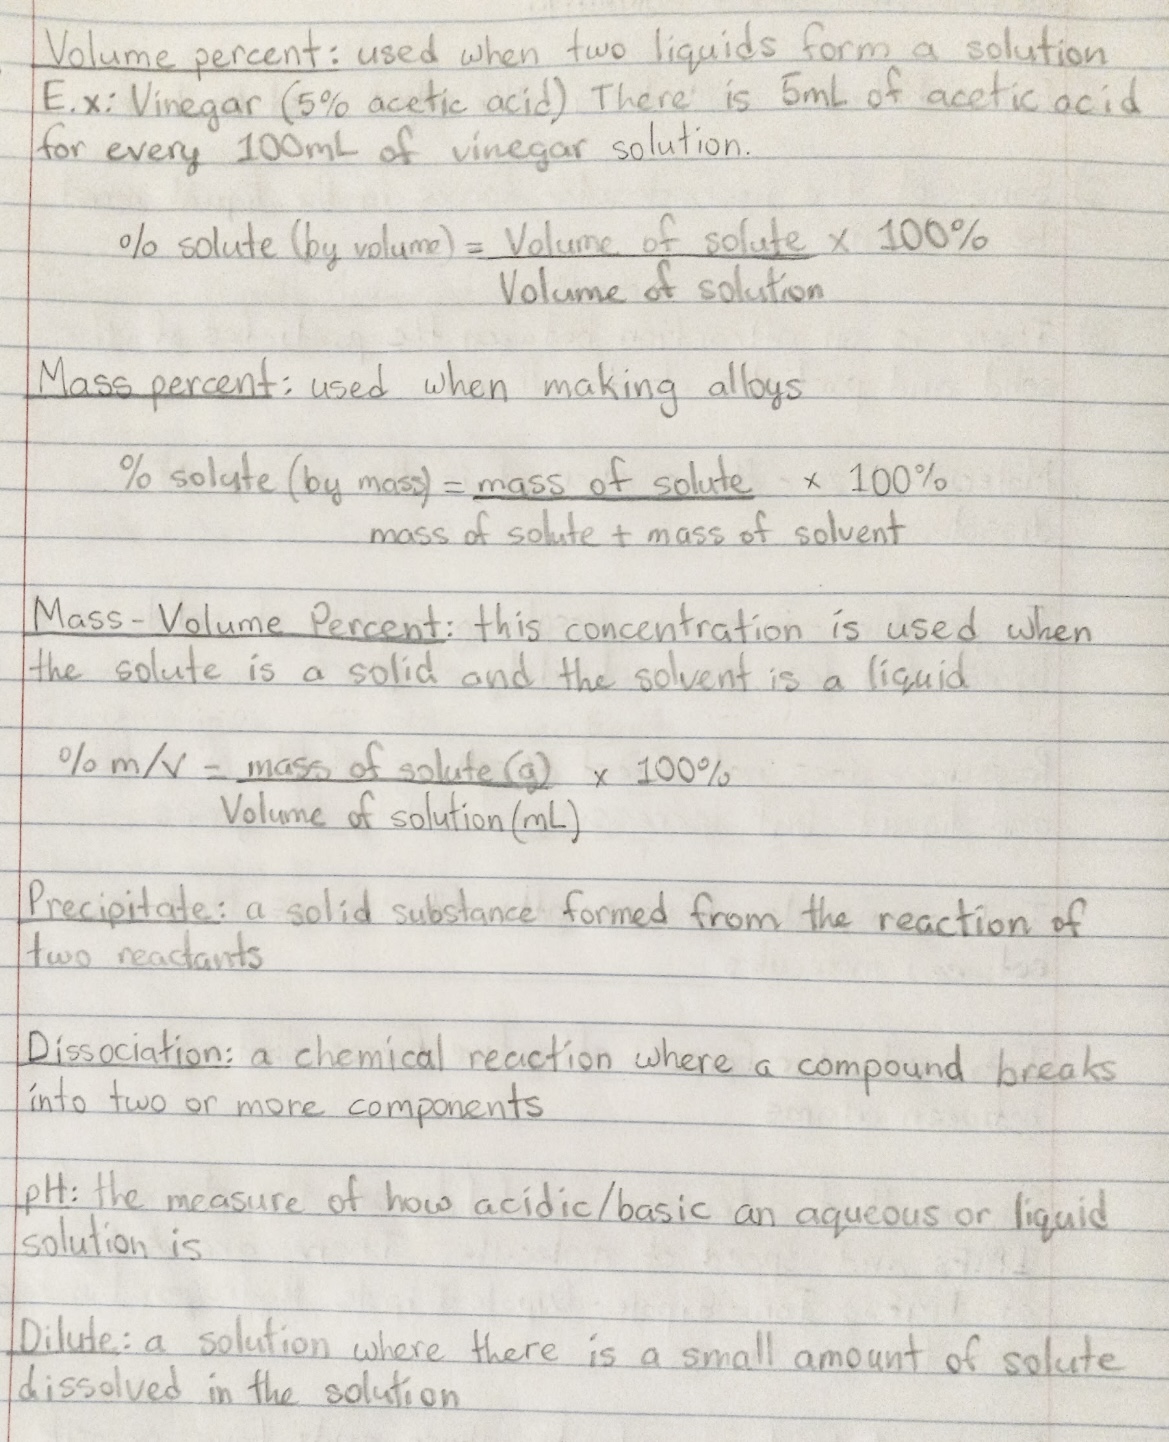 Volume percent: used when two liquids form a solution
E.x: Vinegar (5% acetic acid) There is 5mL of acetic acid
for every 100mL of vinegar solution.
% solute (by volume) = Volume of solute x 100%
Volume of solution
Mass percent: used when making alloys
% solute (by mass) = mass of solute x 100%
mass of solute + mass of solvent
Mass-Volume Percent: this concentration is used when
the solute is a solid and the solvent is a liquid
% m/V = mass of solute (g) x 100%
Volume of solution (mL)
Precipitate: a solid substance formed from the reaction of
two reactants
Dissociation: a chemical reaction where a compound breaks
into two or more components
pH: the measure of how acidic/basic an aqueous or liquid
solution is
Dilute: a solution where there is a small amount of solute
dissolved in the solution